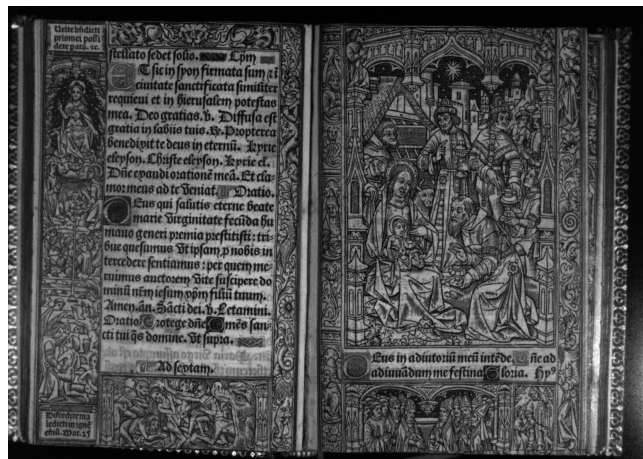 Uenite bñdicti
prismei possi
dete patū. ꝛc.
stellato sedet solio. Lpm
ET sic in syon firmata sum ⁊ ī
ciuitate sanctificata similiter
requieui et in hierusalem potestas
mea. Deo gratias. v. Diffusa est
gratia in labiis tuis. ℟. Propterea
benedixit te deus in eternū. Kyrie
eleyson. Christe eleyson. Kyrie el.
Dñe exaudi orationē meā. Et cla
mor meus ad te veniat. Oratio.
DEus qui salutis eterne beate
marie virginitate fecūda hu
mano generi premia prestitisti: tri
bue quesumus vt ipsam p nobis in
tercedere sentiamus: per quem me
ruimus auctorem vite suscipere do
minū nr̄m iesum xp̄m filiū tuum.
Amen. añ. Sācti dei. v. Letamini.
Oratio Protege dñe Omēs san
cti tui q̄s domine. Vt supra.
Ad sextam.
Discedite ma
ledicti in ignē
eternū. Mat. 25
DEus in adiutoriū meū intēde. Dñe ad
adiuuandum me festina Gloria. Hyꝰ